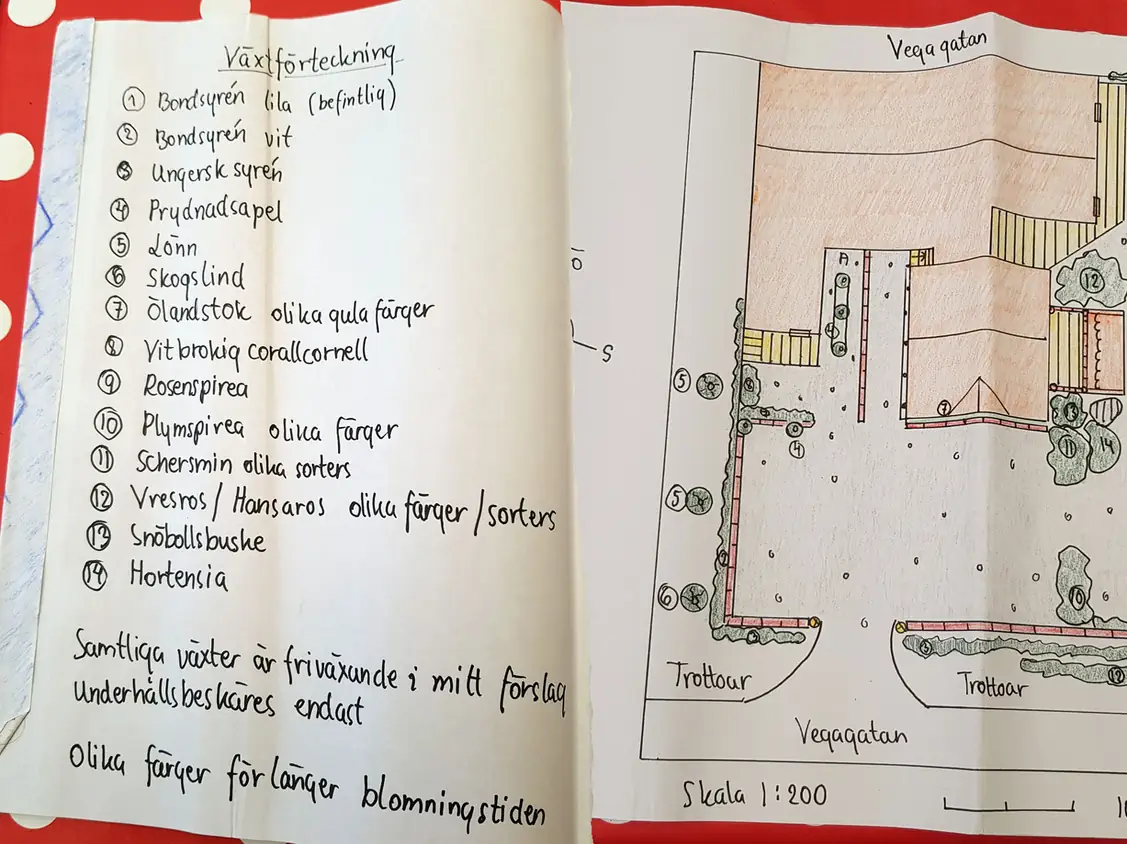 Växtförteckning
① Bondsyrén lila (befintlig)
② Bondsyrén vit
③ Ungersk syrén
④ Prydnadsapel
⑤ Lönn
⑥ Skogslind
⑦ Ölandstok olika gula färger
⑧ Vitbrokig corallcornell
⑨ Rosenspirea
⑩ Plymspirea olika färger
⑪ Schersmin olika sorters
⑫ Vresros/Hansaros olika färger/sorters
⑬ Snöbollsbuske
⑭ Hortensia
Samtliga växter är friväxande i mitt förslag
underhållsbeskäres endast
Olika färger för länger blomningstiden
Vegagatan
Ö
S
A
12
5
8
7
13
4
11
14
5
6
10
Trottoar
Trottoar
Vegagatan
Skala 1:200